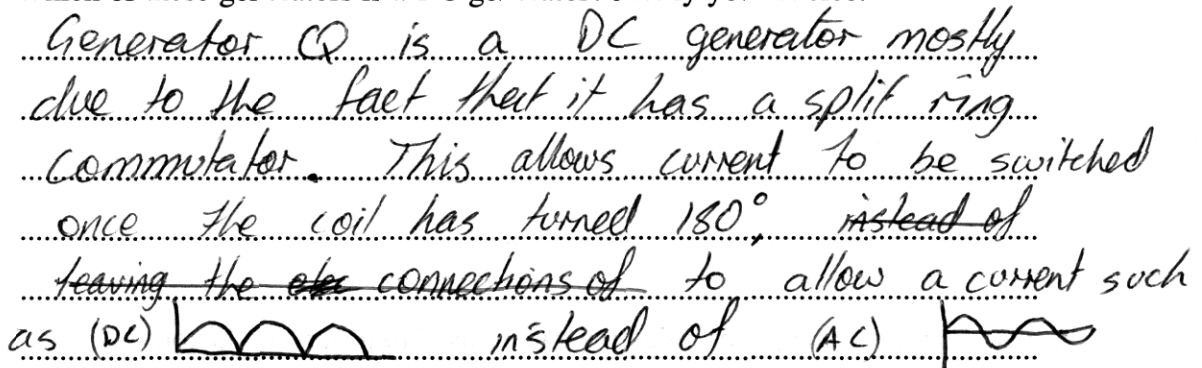 Generator Q is a DC generator mostly
due to the fact that it has a split ring
commutator. This allows current to be switched
once the coil has turned 180°, instead of
leaving the connections of to allow a current such
as (DC) instead of (AC)